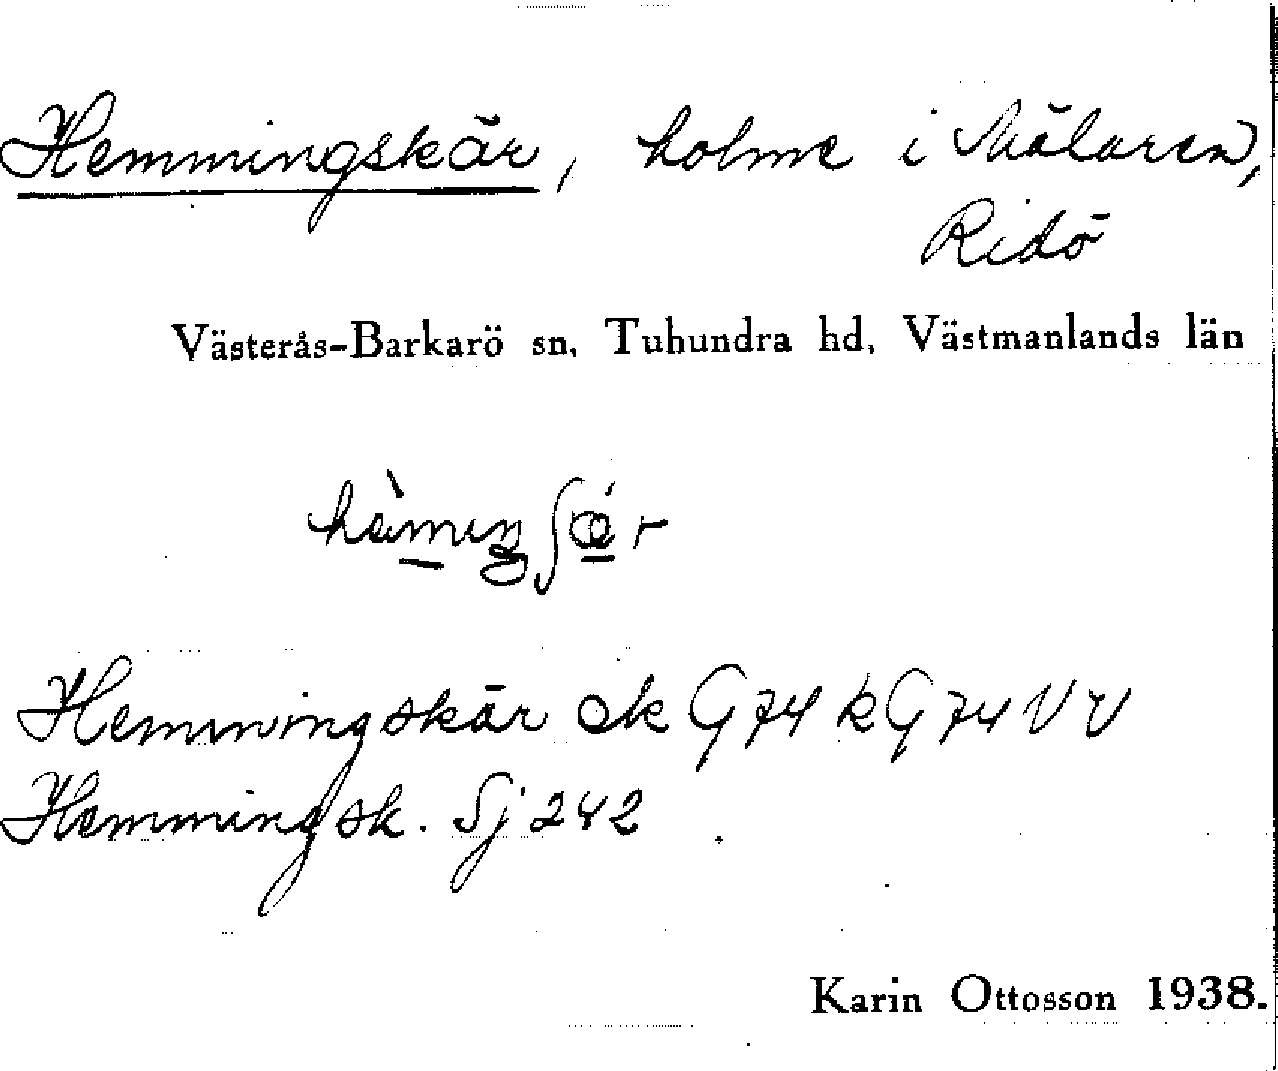 Hemmingskär, holme i Mälaren,
Ridö
Västerås-Barkarö sn, Tuhundra hd, Västmanlands län
Hemmingskär ek G74 k G74 VV
Hemmingsk. Sj 242
Karin Ottosson 1938.